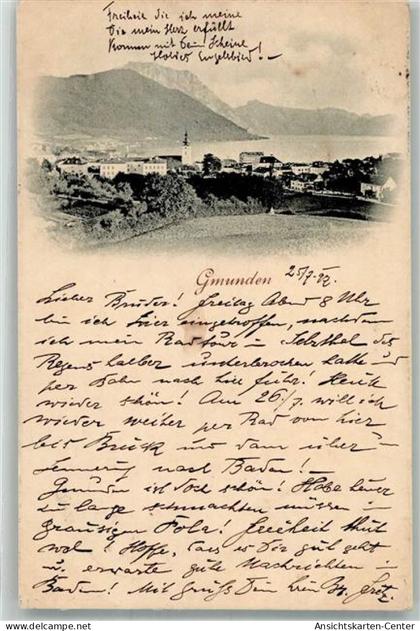 Freiheit die ich meine
Die mein Herz erfüllt
Komm mit Deim Scheine
Holdes Engelsbild!
Gmunden
25/7.97.
Lieber Bruder! Freitag Abend 8 Uhr
bin ich hier eingetroffen, nachdem
ich meine Radtour in Selzthal des
Regens halber unterbrochen hatte und
per Bahn nach hier fuhr! Heute
wieder schön! Am 26/7. will ich
wieder weiter per Rad von hier
bis Bruck und dann über
Semmering nach Baden!
Gmunden ist doch schön! Habe heuer
zu lange schmachten müssen im
grausigen Pola! Freiheit thut
wol! Hoffe, dass es Dir gut geht
u. erwarte gute Nachrichten in
Baden! Mit Gruß Dein
Ansichtskarten-Center